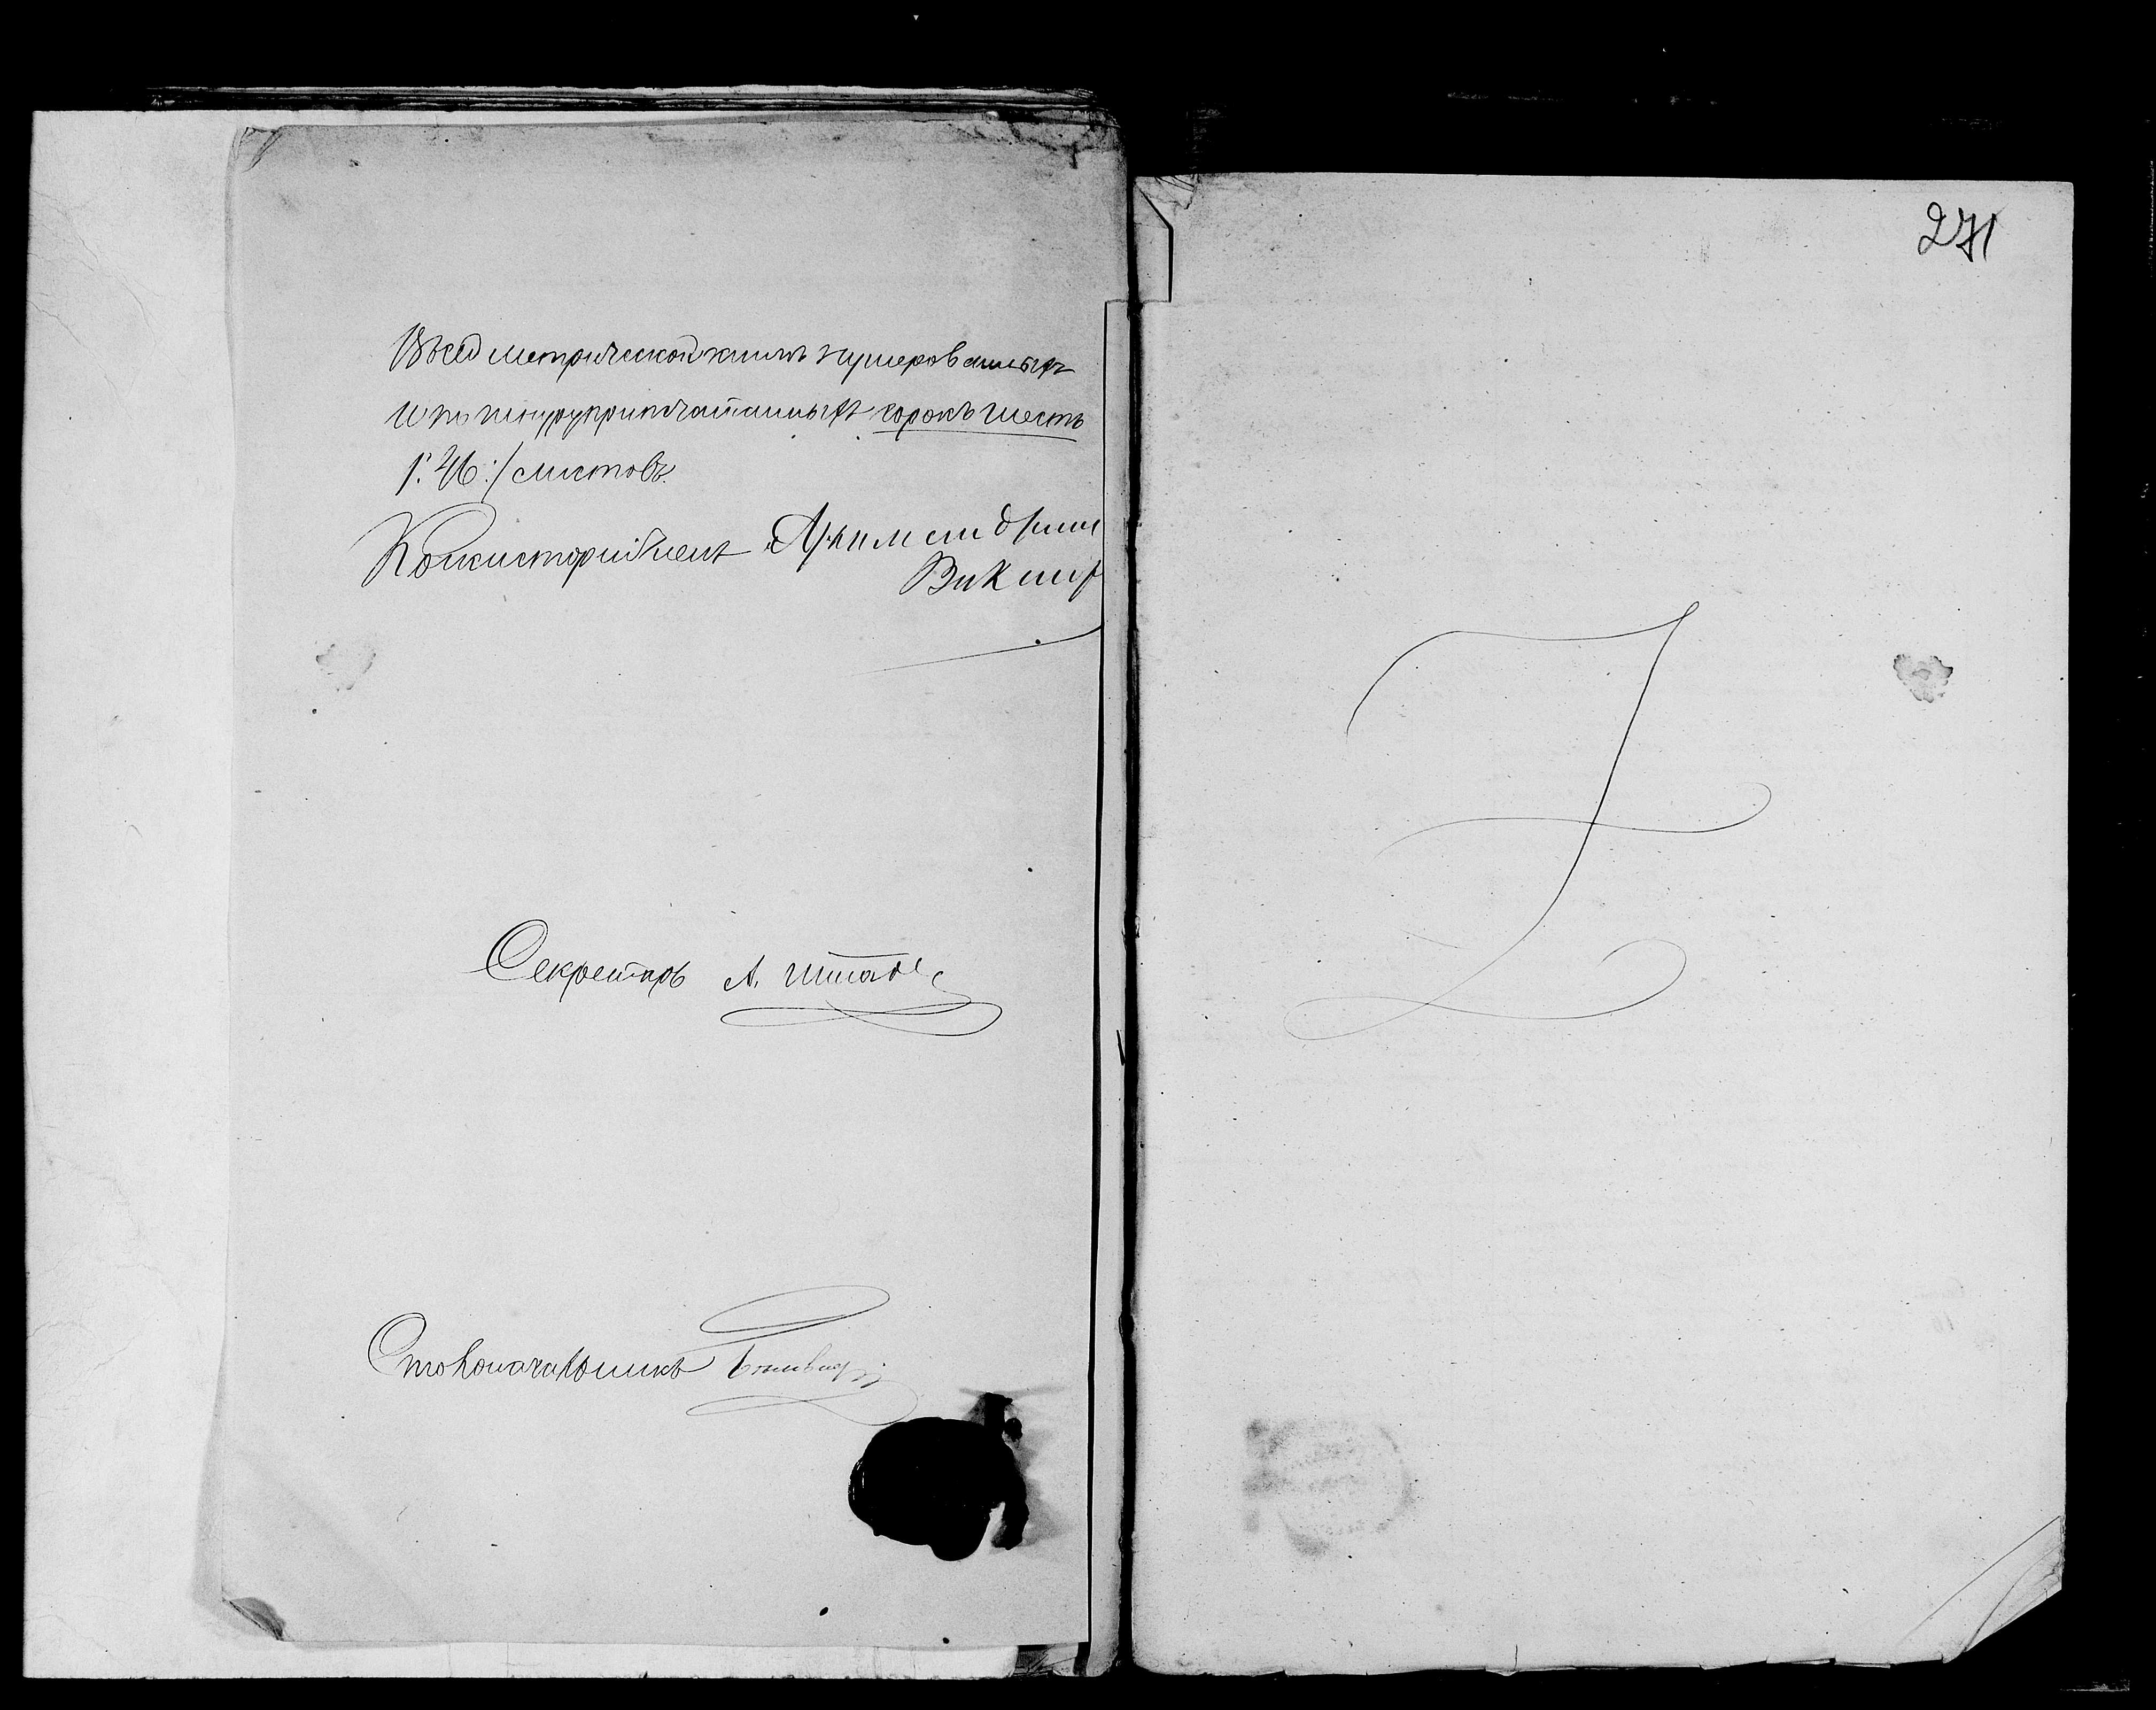 Въ сей метрической книгѣ нумерованныхъ
и по шнуру припечатанныхъ сорокъ шесть
/:46:/ листовъ.
Консисторіи Членъ Архимандритъ
Секретарь А.
Столоначальникъ
271